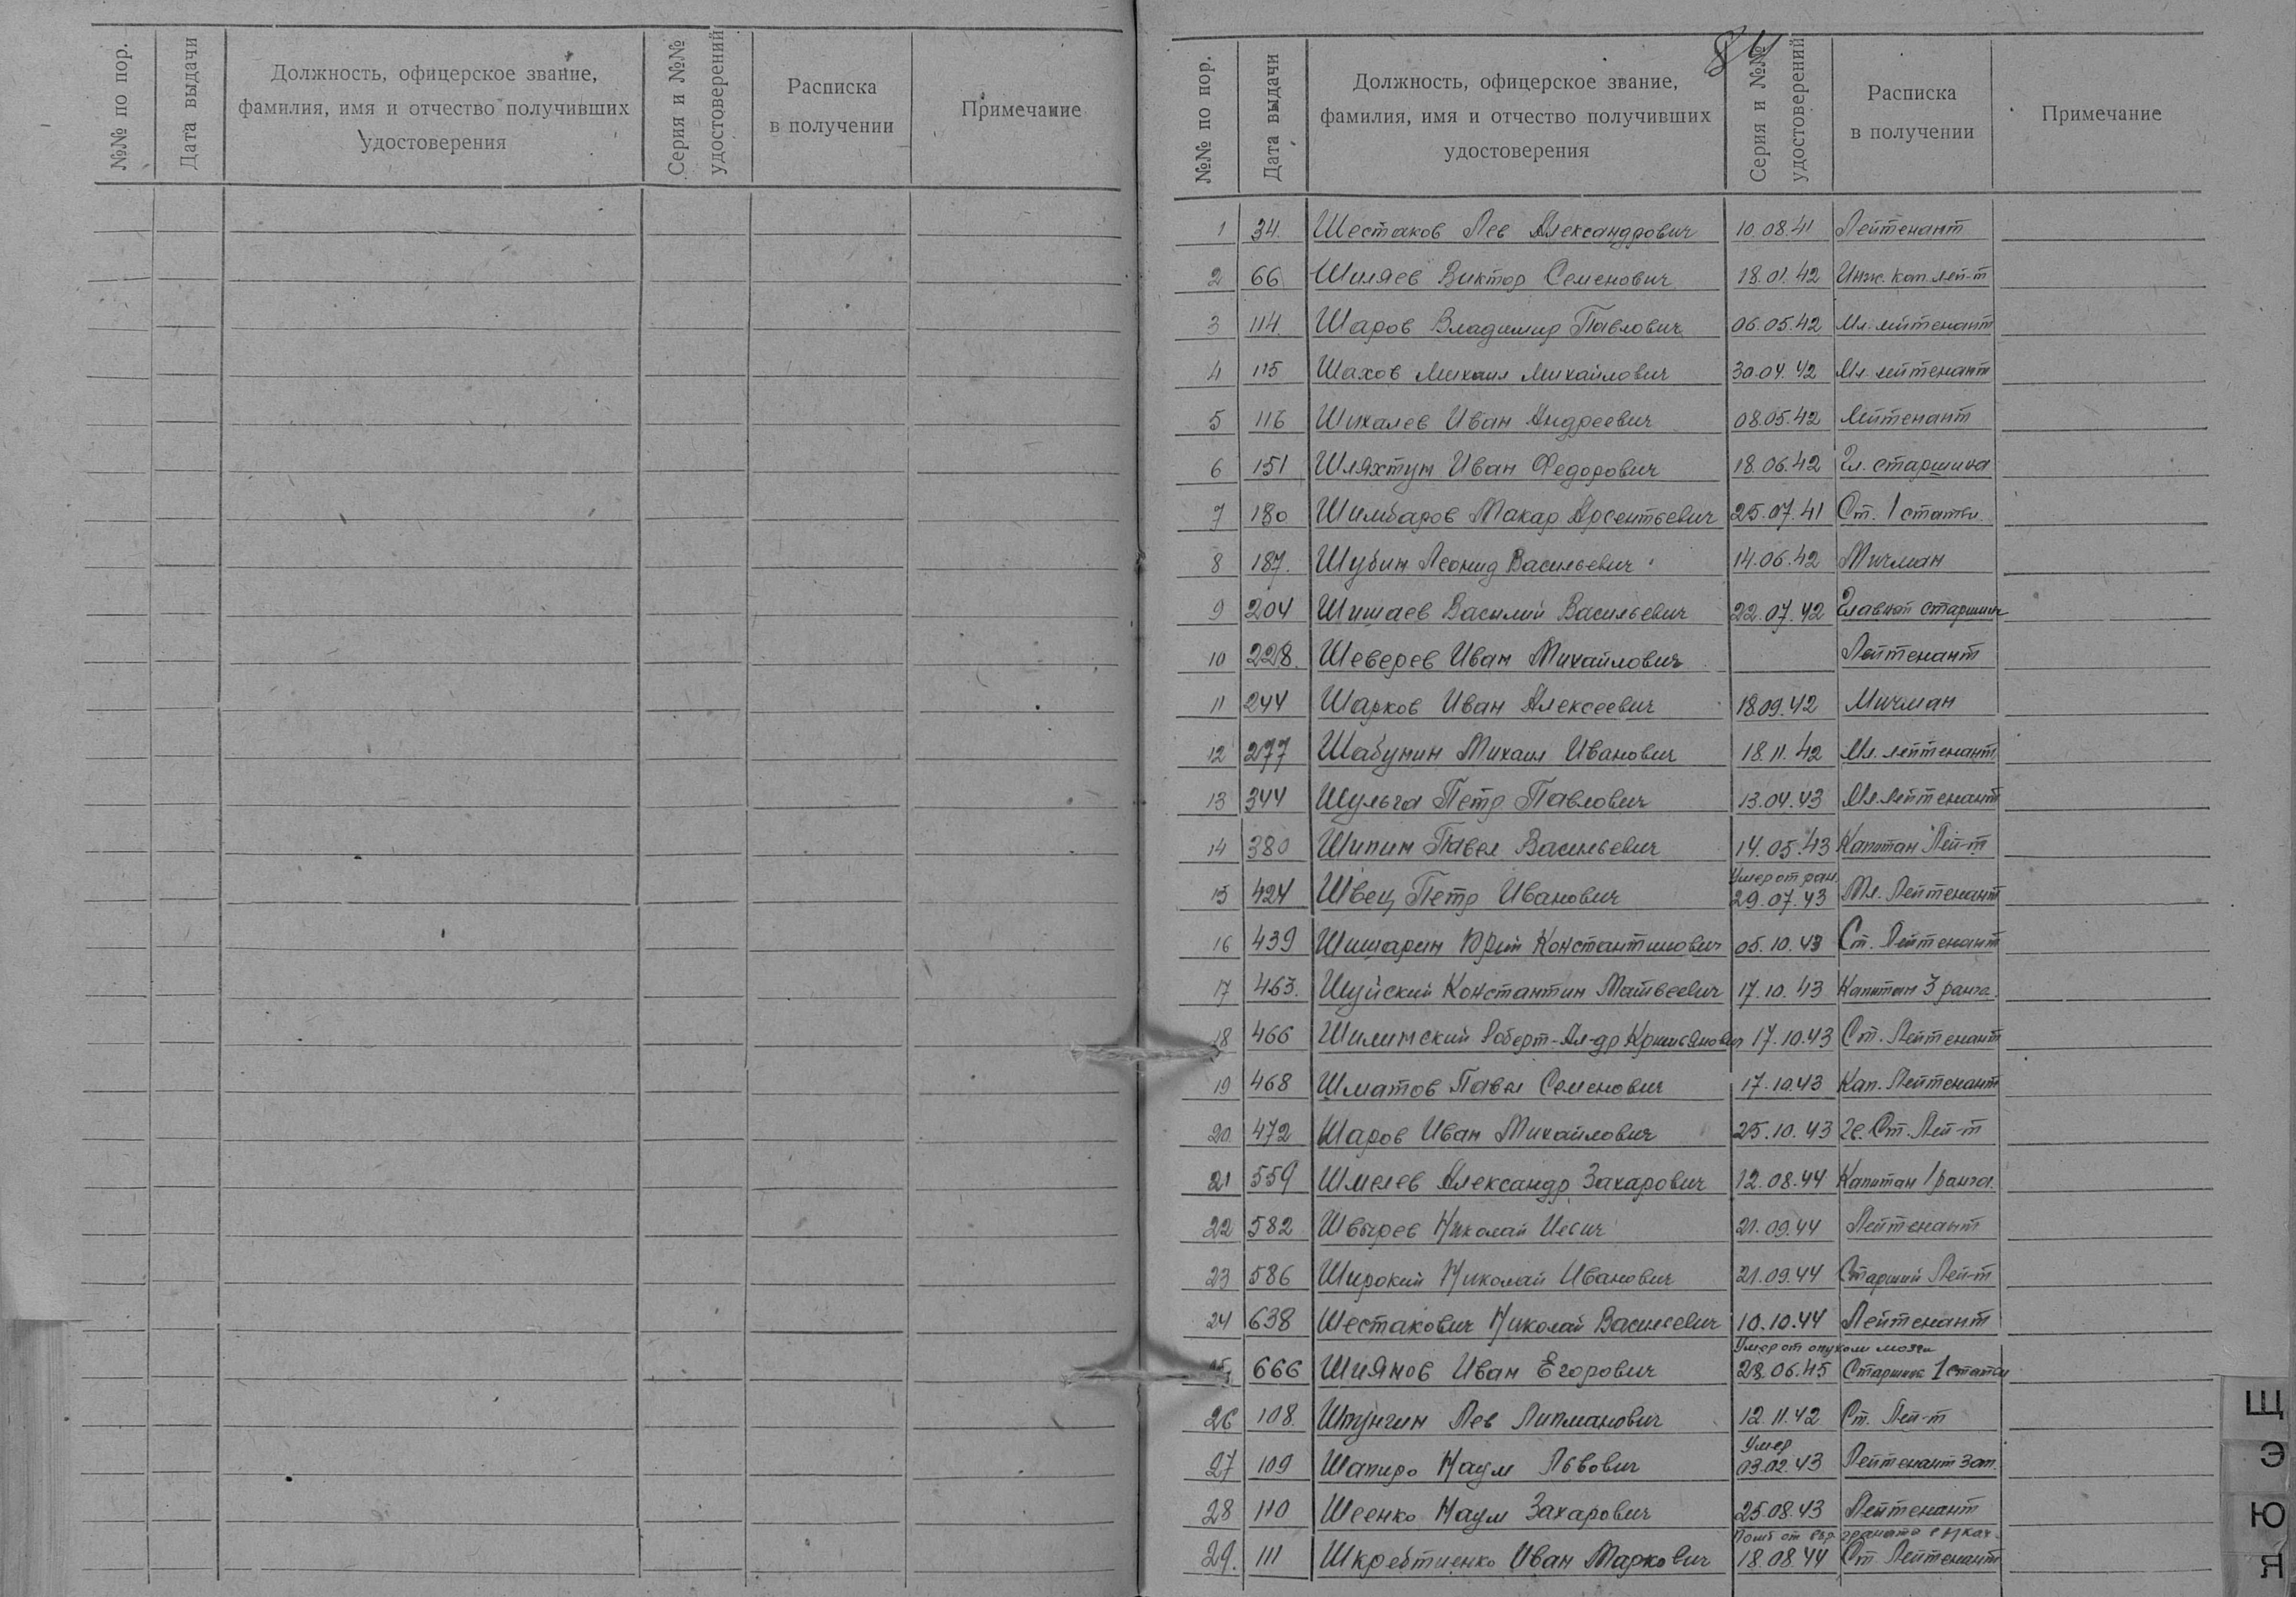 №№ по пор.
Дата выдачи
Должность, офицерское звание,
фамилия, имя и отчество получивших
удостоверения
Серия и №№
удостоверений
Расписка
в получении
Примечание
84
№№ по пор.
Дата выдачи
Должность, офицерское звание,
фамилия, имя и отчество получивших
удостоверения
Серия и №№
удостоверений
Расписка
в получении
Примечание
1 34. Шестаков Лев Александрович 10.08.41 Лейтенант
2 66 Шиляев Виктор Семенович 18.01.42 Инж. кап. лей-т
3 114. Шаров Владимир Павлович 06.05.42 Мл. лейтенант
4 115 Шахов Михаил Михайлович 30.04.42 Мл. лейтенант
5 116 Шихалев Иван Андреевич 08.05.42 Лейтенант
6 151 Шляхтун Иван Федорович 18.06.42 Гл. старшина
7 180 Шимбаров Макар Арсентьевич 25.07.41 Ст. 1 статьи
8 187. Шубин Леонид Васильевич 14.06.42 Мичман
9 204 Шишаев Василий Васильевич 22.07.42 Главный старшина
10 228. Шеверев Иван Михайлович Лейтенант
11 244 Шарков Иван Алексеевич 18.09.42 Мичман
12 277 Шабунин Михаил Иванович 18.11.42 Мл. лейтенант
13 344 Шульга Петр Павлович 13.04.43 Мл. лейтенант
14 380 Шипин Павел Васильевич 14.05.43 Капитан Лей-т
Умер от ран.
15 424 Швец Петр Иванович 29.07.43 Мл. Лейтенант
16 439 Шишарин Юрий Константинович 05.10.43 Ст. Лейтенант
17 463. Шуйский Константин Матвеевич 17.10.43 Капитан 3 ранга
18 466 Шилинский Роберт-Ал-др 17.10.43 Ст. Лейтенант
19 468 Шматов Павел Семенович 17.10.43 Кап. Лейтенант
20 472 Шаров Иван Михайлович 25.10.43 Ст. Лей-т
21 559 Шмелев Александр Захарович 12.08.44 Капитан 1 ранга
22 582 Швырев Николай 21.09.44 Лейтенант
23 586 Широкий Николай Иванович 21.09.44 Старший Лей-т
24 638 Шестакович Николай Васильевич 10.10.44 Лейтенант
Умер от опухоли мозга
25 666 Шиянов Иван Егорович 28.06.45 Старшина 1 статьи
26 108 Штунгин Лев Липманович 12.11.42 Ст. Лей-т
Умер
27 109 Шапиро Наум Львович 03.02.43 Лейтенант зап.
28 110 Шеенко Наум Захарович 25.08.43 Лейтенант
29. 111 Шкребтиенко Иван Маркович 18.08.44 Ст. Лейтенант
Щ
Э
Ю
Я